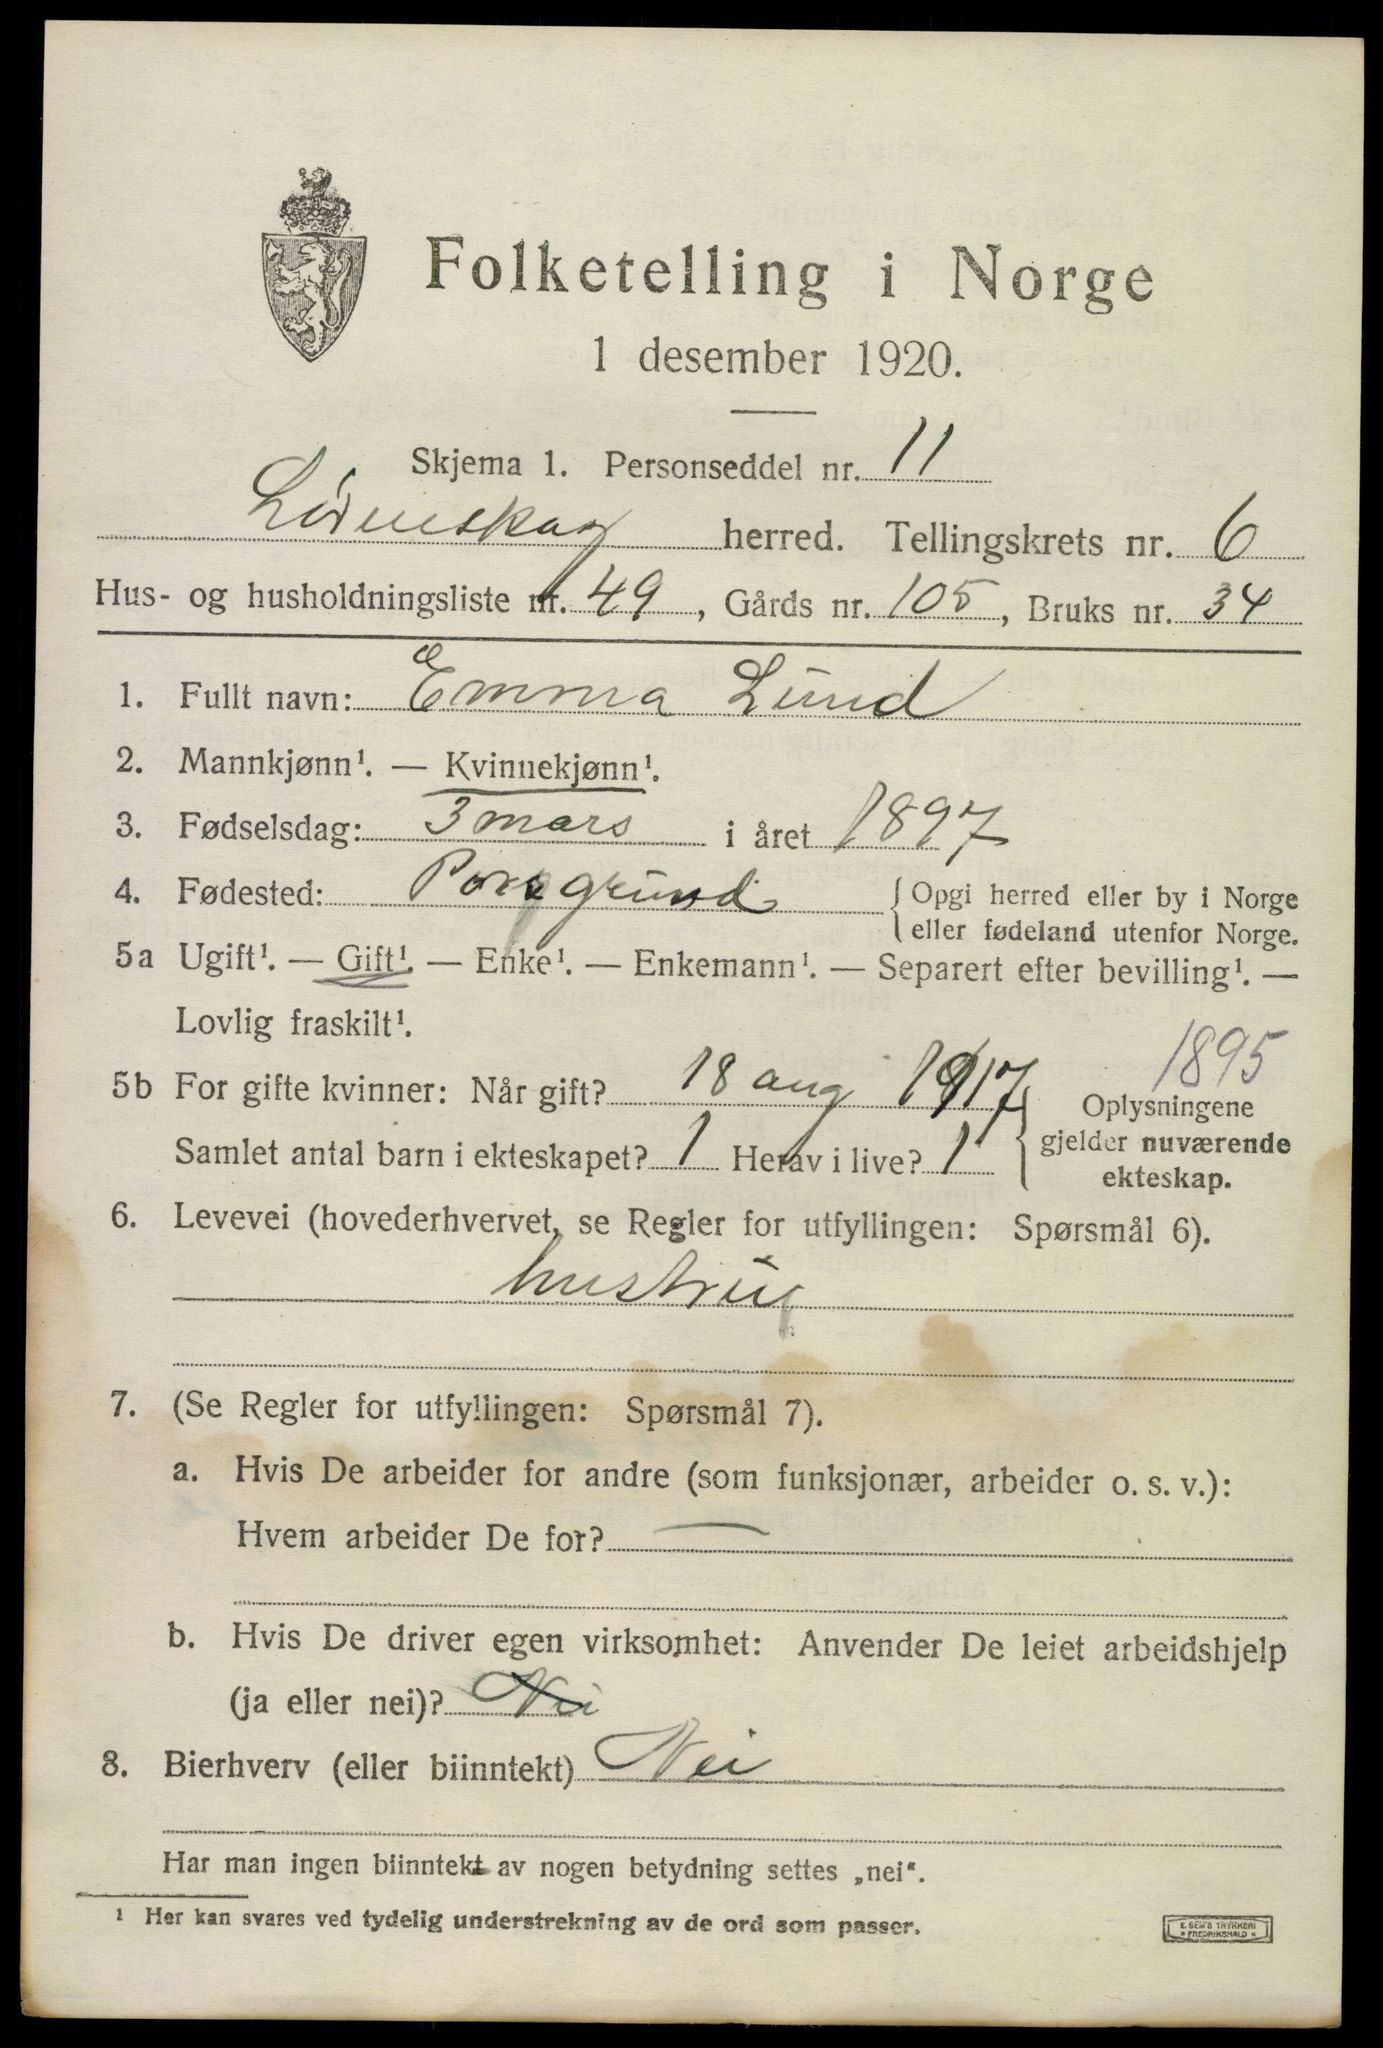 Folketelling i Norge
1 desember 1920.
Skjema 1. Personseddel nr. 11
Lørenskog herred. Tellingskrets nr. 6
Hus- og husholdningsliste nr. 49, Gårds nr. 105, Bruks nr. 34
1. Fullt navn: Emma Lund
2. Mannkjønn¹. — Kvinnekjønn¹.
3. Fødselsdag: 3 mars i året 1897
4. Fødested: Porsgrund { Opgi herred eller by i Norge
eller fødeland utenfor Norge.
5a Ugift¹. — Gift¹. — Enke¹. — Enkemann¹. — Separert efter bevilling¹. —
Lovlig fraskilt¹.
1895
5b For gifte kvinner: Når gift? 18 aug 1917 } Oplysningene
gjelder nuværende
Samlet antal barn i ekteskapet? 1 Herav i live? 1
ekteskap.
6. Levevei (hovederhvervet, se Regler for utfyllingen: Spørsmål 6).
hustru
7. (Se Regler for utfyllingen: Spørsmål 7).
a. Hvis De arbeider for andre (som funksjonær, arbeider o. s. v.):
Hvem arbeider De for? —
b. Hvis De driver egen virksomhet: Anvender De leiet arbeidshjelp
(ja eller nei)? Nei
8. Bierhverv (eller biinntekt) Nei
Har man ingen biinntekt av nogen betydning settes „nei“.
¹ Her kan svares ved tydelig understrekning av de ord som passer.
E. SEM'S TRYKKERI
* FREDRIKSHALD *